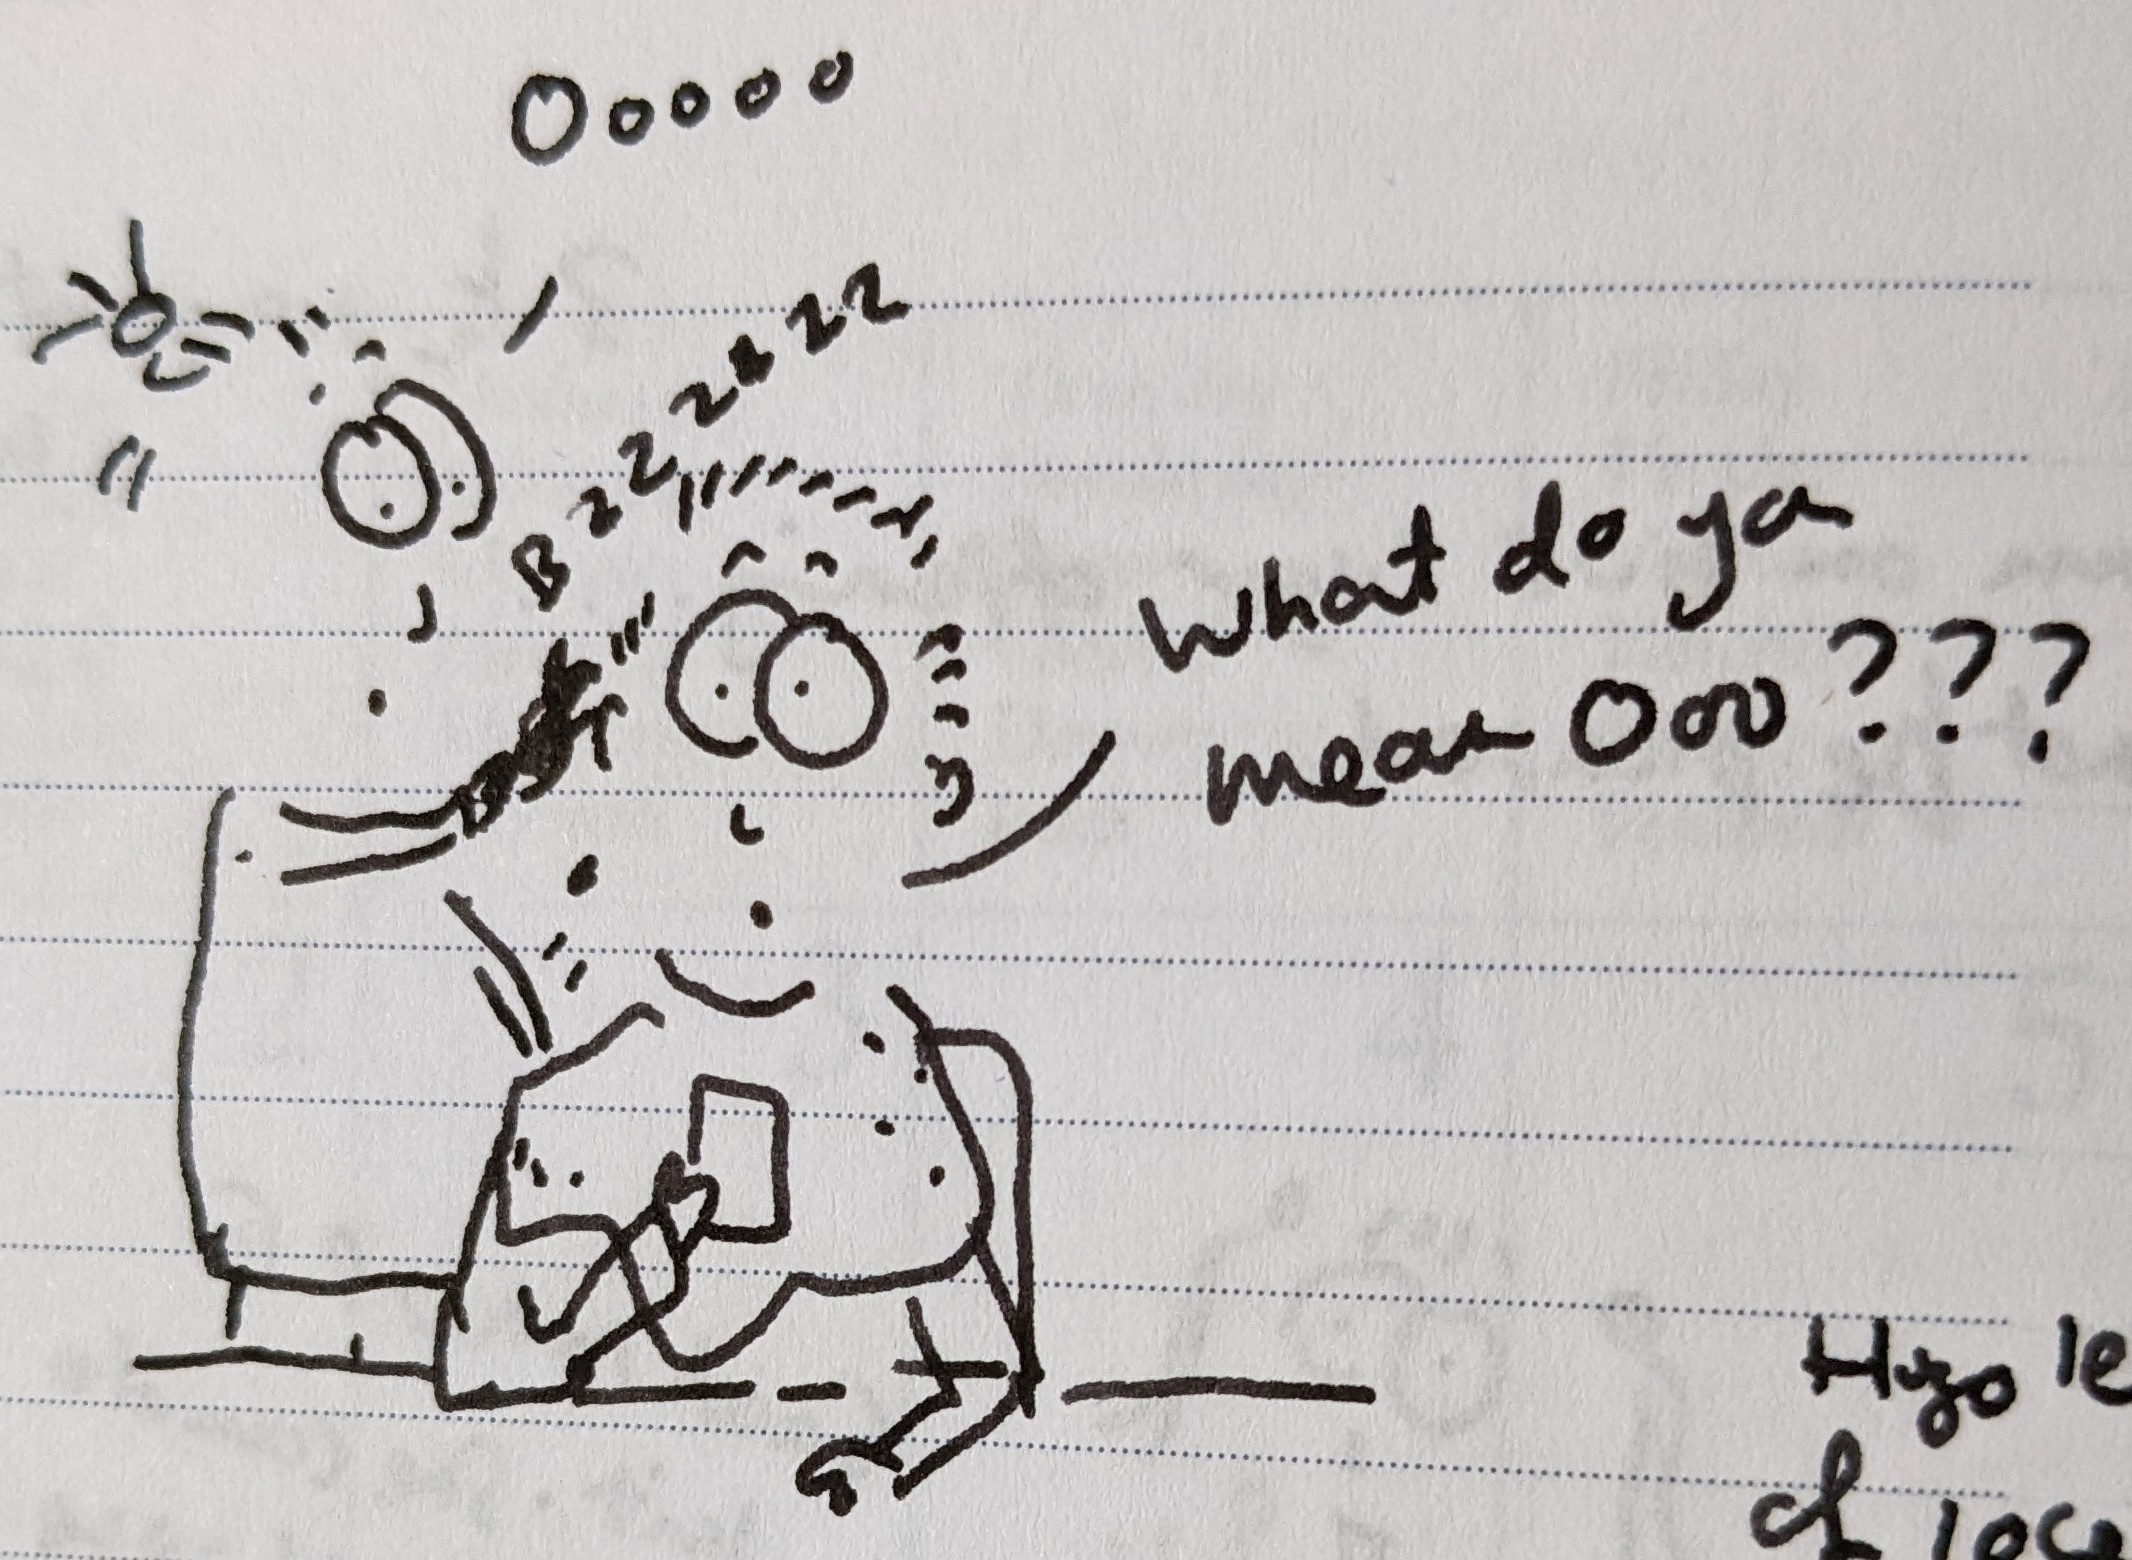 Ooooo
Bzzzzzzz
What do ya
mean Ooo???
of